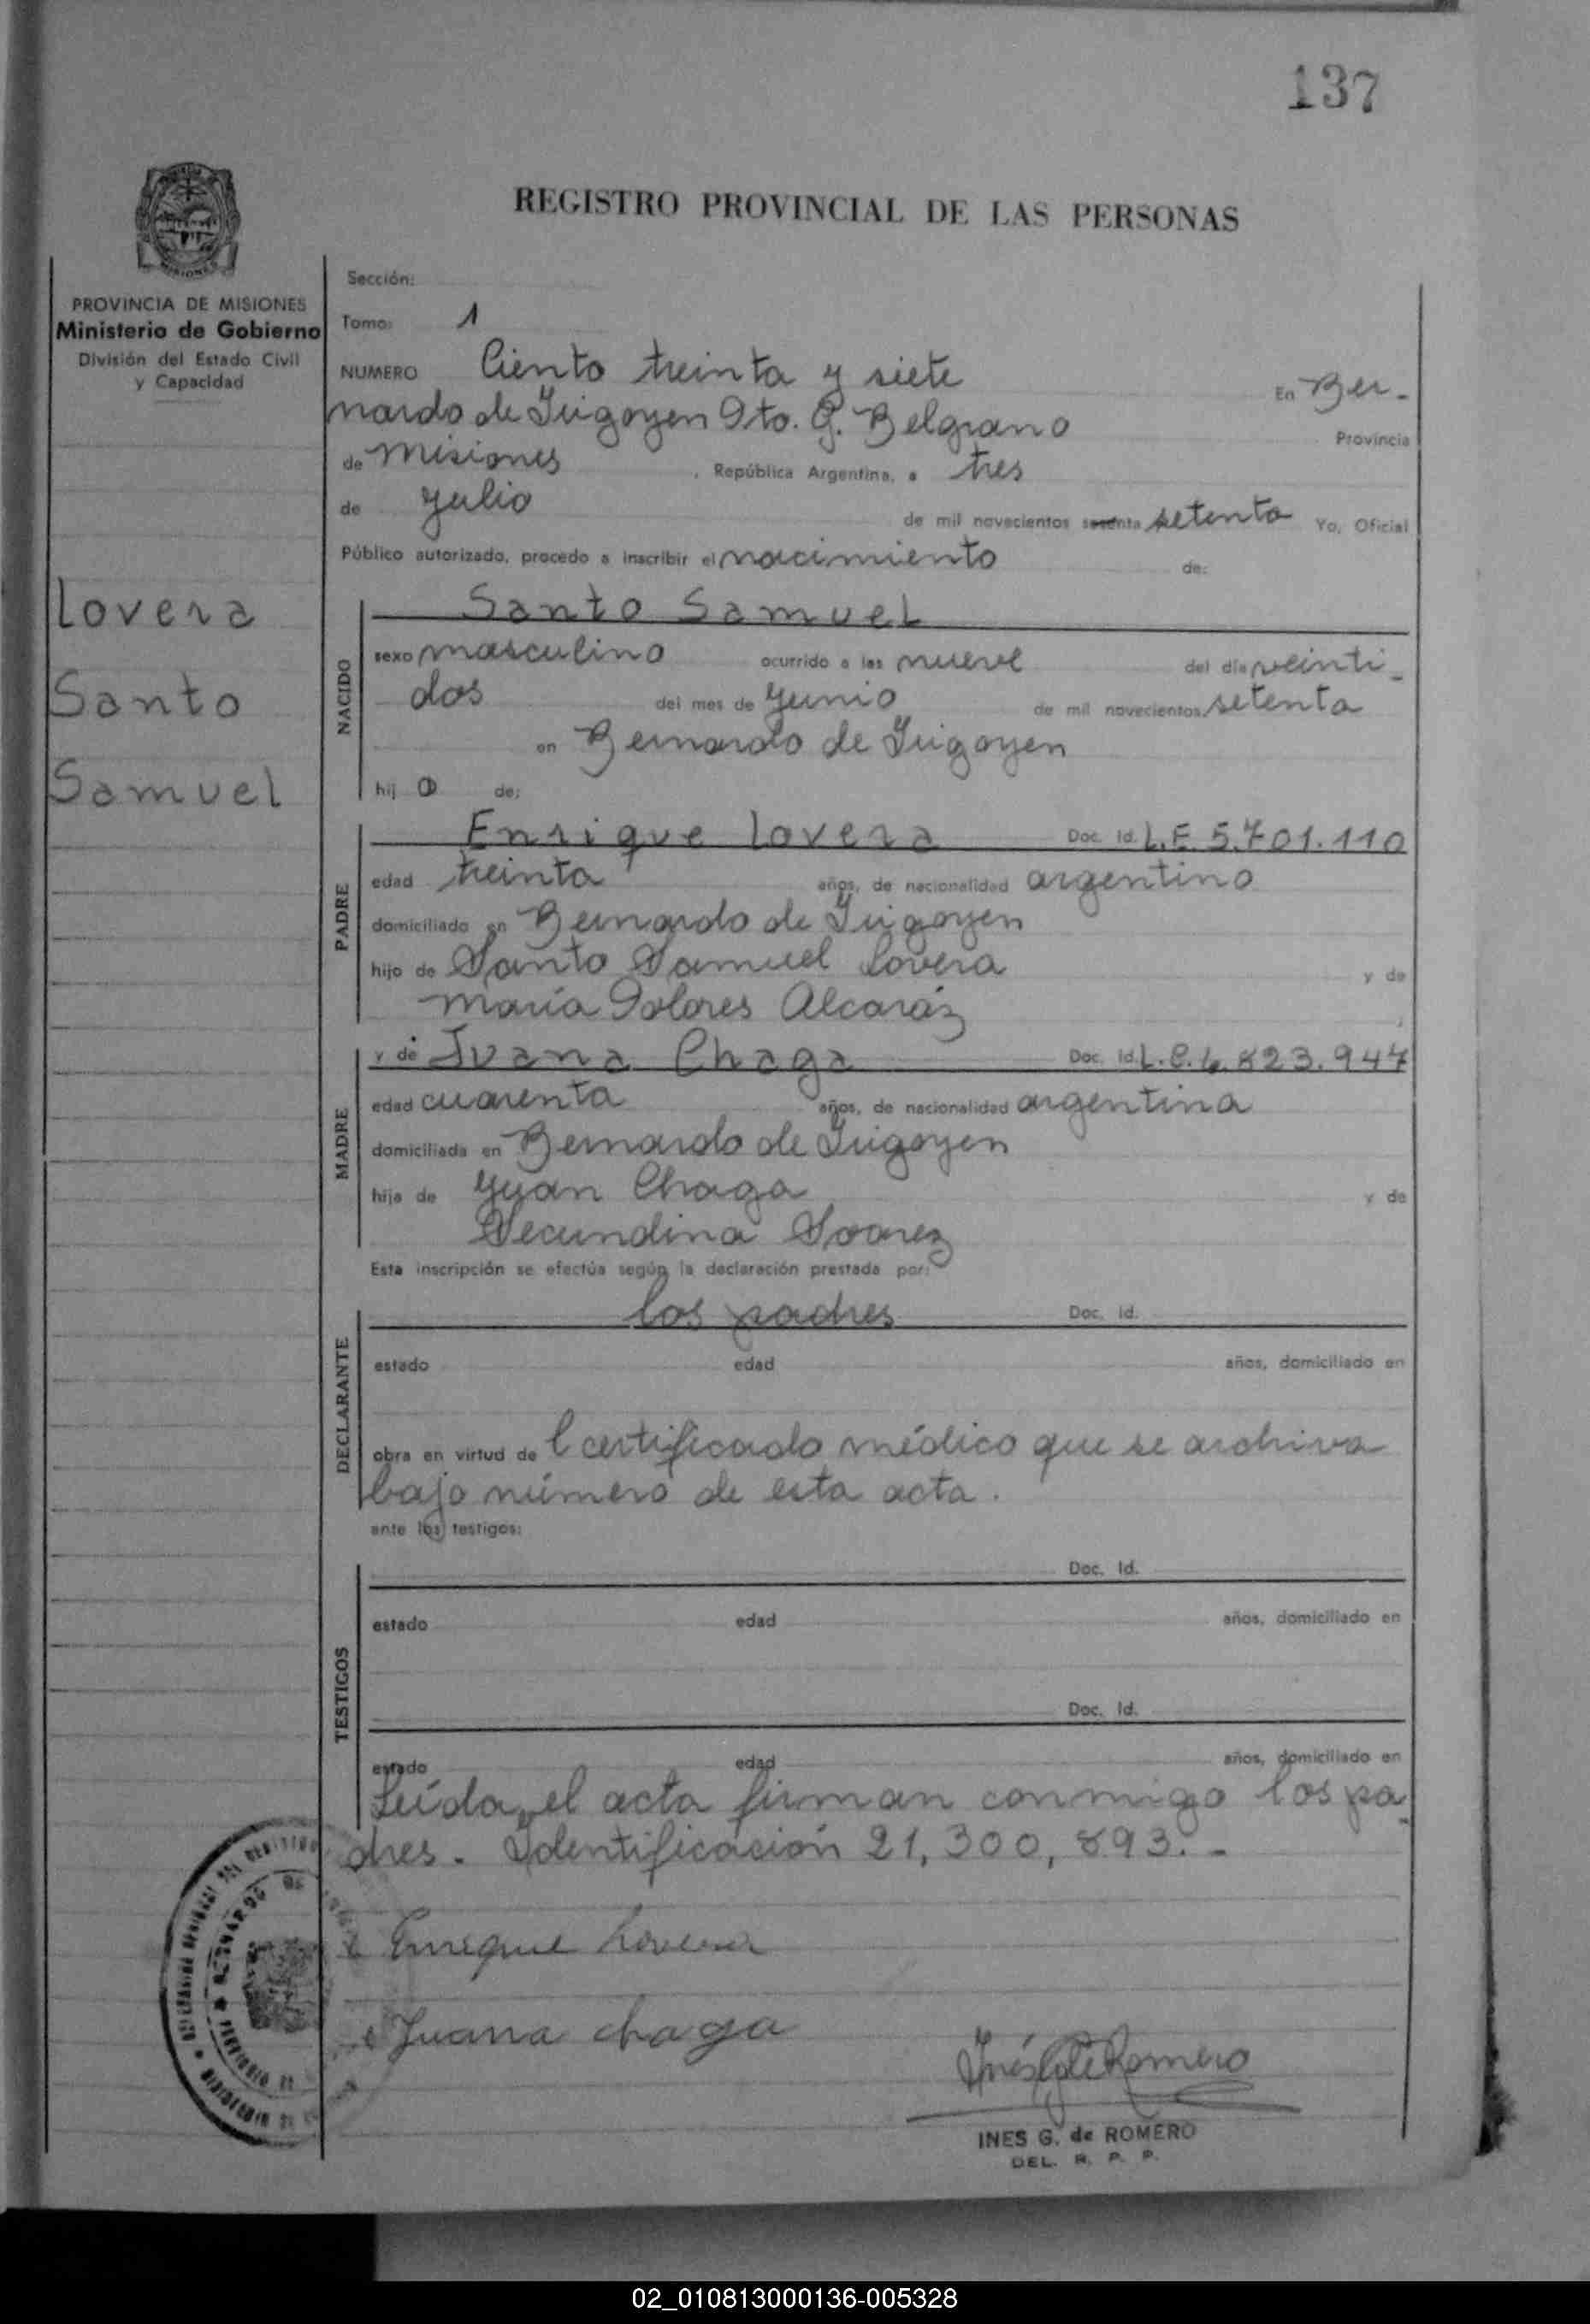 137
REGISTRO PROVINCIAL DE LAS PERSONAS
MISIONES
PROVINCIA DE MISIONES
Ministerio de Gobierno
División del Estado Civil
y Capacidad
Lovera
Santo
Samuel
Sección:
Tomo: 1
NUMERO Ciento treinta y siete En Ber-
nardo de Irigoyen Dto. G. Belgrano Provincia
de Misiones , República Argentina, a tres
de Julio de mil novecientos sesenta setenta Yo, Oficial
Público autorizado, procedo a inscribir el nacimiento de:
NACIDO
Santo Samuel
sexo masculino ocurrido a las nueve del día veinti-
dos del mes de Junio de mil novecientos setenta
en Bernardo de Irigoyen
hij o de:
PADRE
Enrique Lovera Doc. Id. L.E. 5.701.110
edad treinta años, de nacionalidad argentino
domiciliado en Bernardo de Irigoyen
hijo de Santo Samuel Lovera y de
María Dolores Alcaráz
MADRE
y de Juana Chaga Doc. Id. L.C. 6.823.947
edad cuarenta años, de nacionalidad argentina
domiciliada en Bernardo de Irigoyen
hija de Juan Chaga y de
Secundina Soarez
Esta inscripción se efectúa según la declaración prestada por:
DECLARANTE
los padres Doc. Id.
estado edad años, domiciliado en
obra en virtud de l certificado médico que se archiva
bajo número de esta acta.
ante los testigos:
TESTIGOS
Doc. Id.
estado edad años, domiciliado en
Doc. Id.
estado edad años, domiciliado en
Leída, el acta firman conmigo los pa-
dres. Identificación 21,300,893.-
Enrique Lovera
Juana chaga
Romero
INES G. de ROMERO
DEL. R. P. P.
02_010813000136-005328